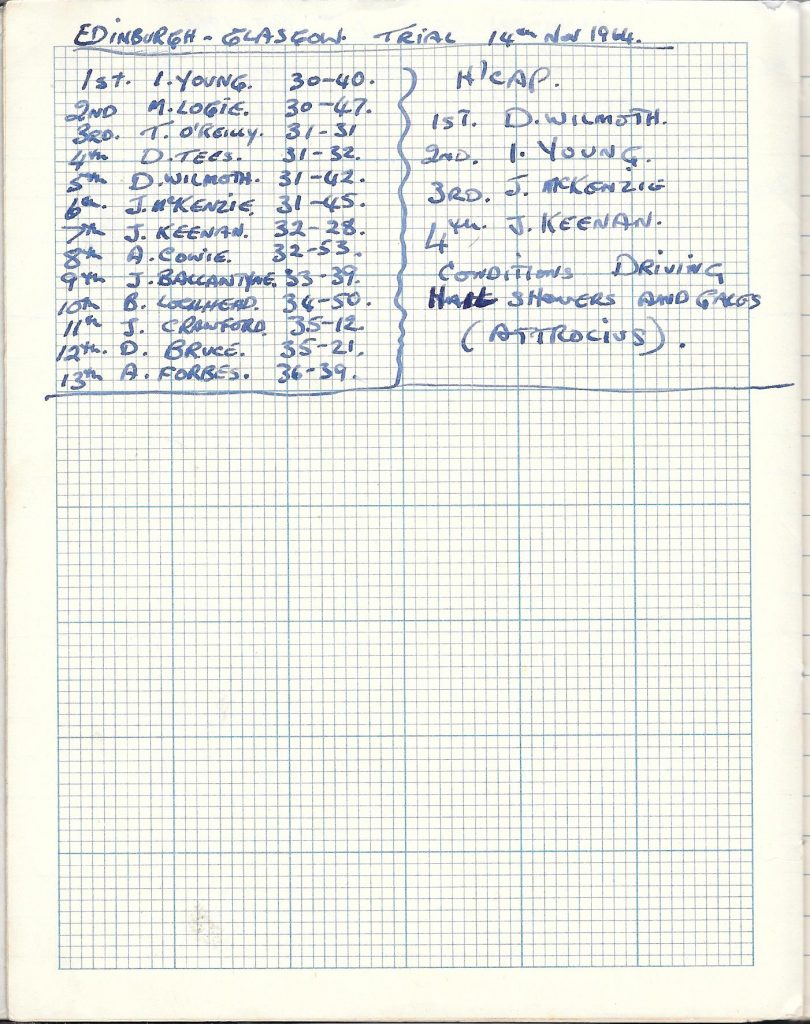 EDINBURGH - GLASGOW TRIAL 14th Nov 1964.
1st. I. YOUNG. 30-40.
2ND M. LOGIE. 30-47.
3RD. T. O'REILLY. 31-31
4th D. TEES. 31-32.
5th D. WILMOTH. 31-42.
6th. J. McKENZIE. 31-45.
7th J. KEENAN. 32-28.
8th A. COWIE. 32-53.
9th J. BALLANTYNE. 33-39.
10th B. LOCHHEAD. 34-50.
11th J. CRAWFORD. 35-12.
12th. D. BRUCE. 35-21.
13th A. FORBES. 36-39.
H'CAP.
1ST. D. WILMOTH.
2ND. I. YOUNG.
3RD. J. McKENZIE
4th. J. KEENAN.
CONDITIONS DRIVING
HAIL SHOWERS AND GALES
(ATTROCIUS).